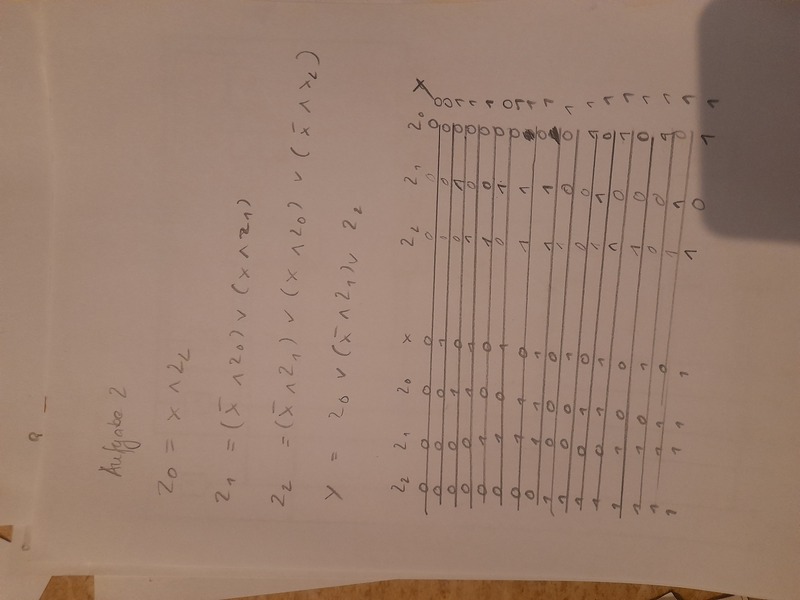 Aufgabe 2
Z0 = x ∧ Z2
Z1 = (x̄ ∧ Z0) ∨ (x ∧ Z1)
Z2 = (x̄ ∧ Z1) ∨ (x ∧ Z0) ∨ (x̄ ∧ x2)
Y = Z0 ∨ (x̄ ∧ Z1) ∨ Z2
Z2 Z1 Z0 x Z2 Z1 Z0 Y
0 0 0 0 0 0 0 0
0 0 0 1 0 0 0 0
0 0 1 0 0 1 0 1
0 0 1 1 1 0 0 1
0 1 0 0 1 0 0 1
0 1 0 1 0 1 0 0
0 1 1 0 1 1 0 1
0 1 1 1 1 1 0 1
1 0 0 0 1 0 0 1
1 0 0 1 0 0 1 1
1 0 1 0 1 1 0 1
1 0 1 1 1 0 1 1
1 1 0 0 1 0 0 1
1 1 0 1 0 0 1 1
1 1 1 0 1 1 0 1
1 1 1 1 1 0 1 1